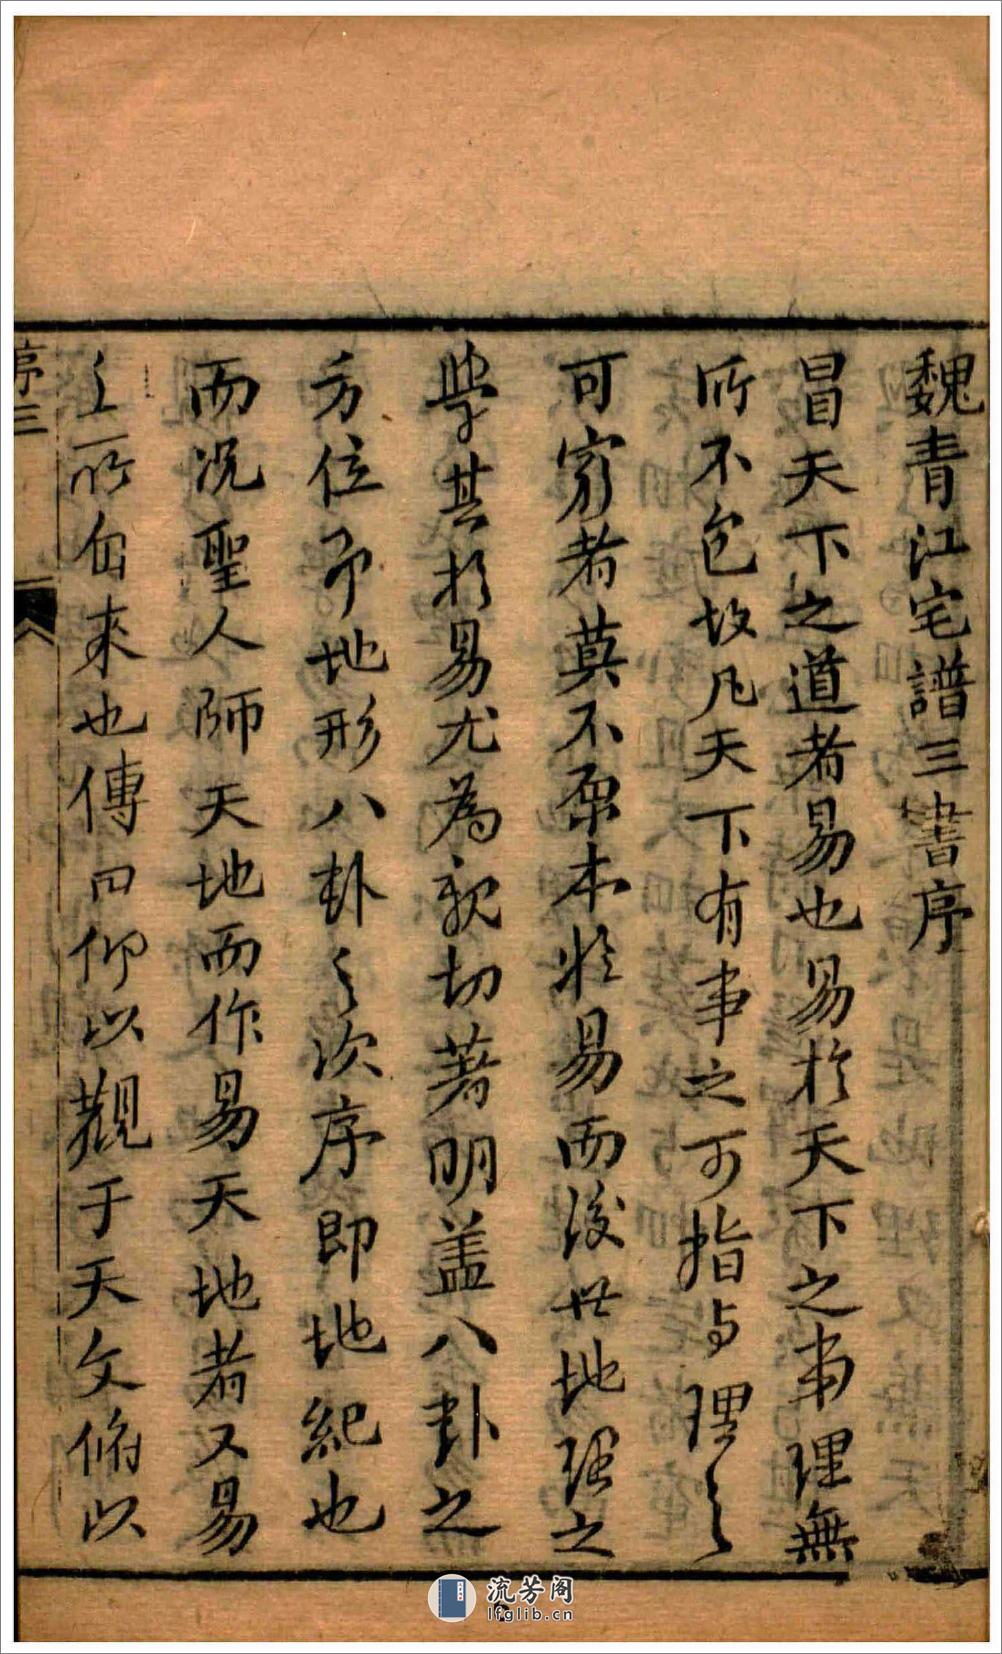 魏青江宅譜三書序
冒天下之道者易也易於天下之事理無
所不包故凡天下有事之可指与理之
可窮者莫不原本於易而後世地理之
學其於易尤為親切著明盖八卦之
方位即地形八卦之次序即地紀也
而况聖人師天地而作易天地者又易
之所由來也傳曰仰以觀于天文俯以
序三
流芳阁
lfglib.cn